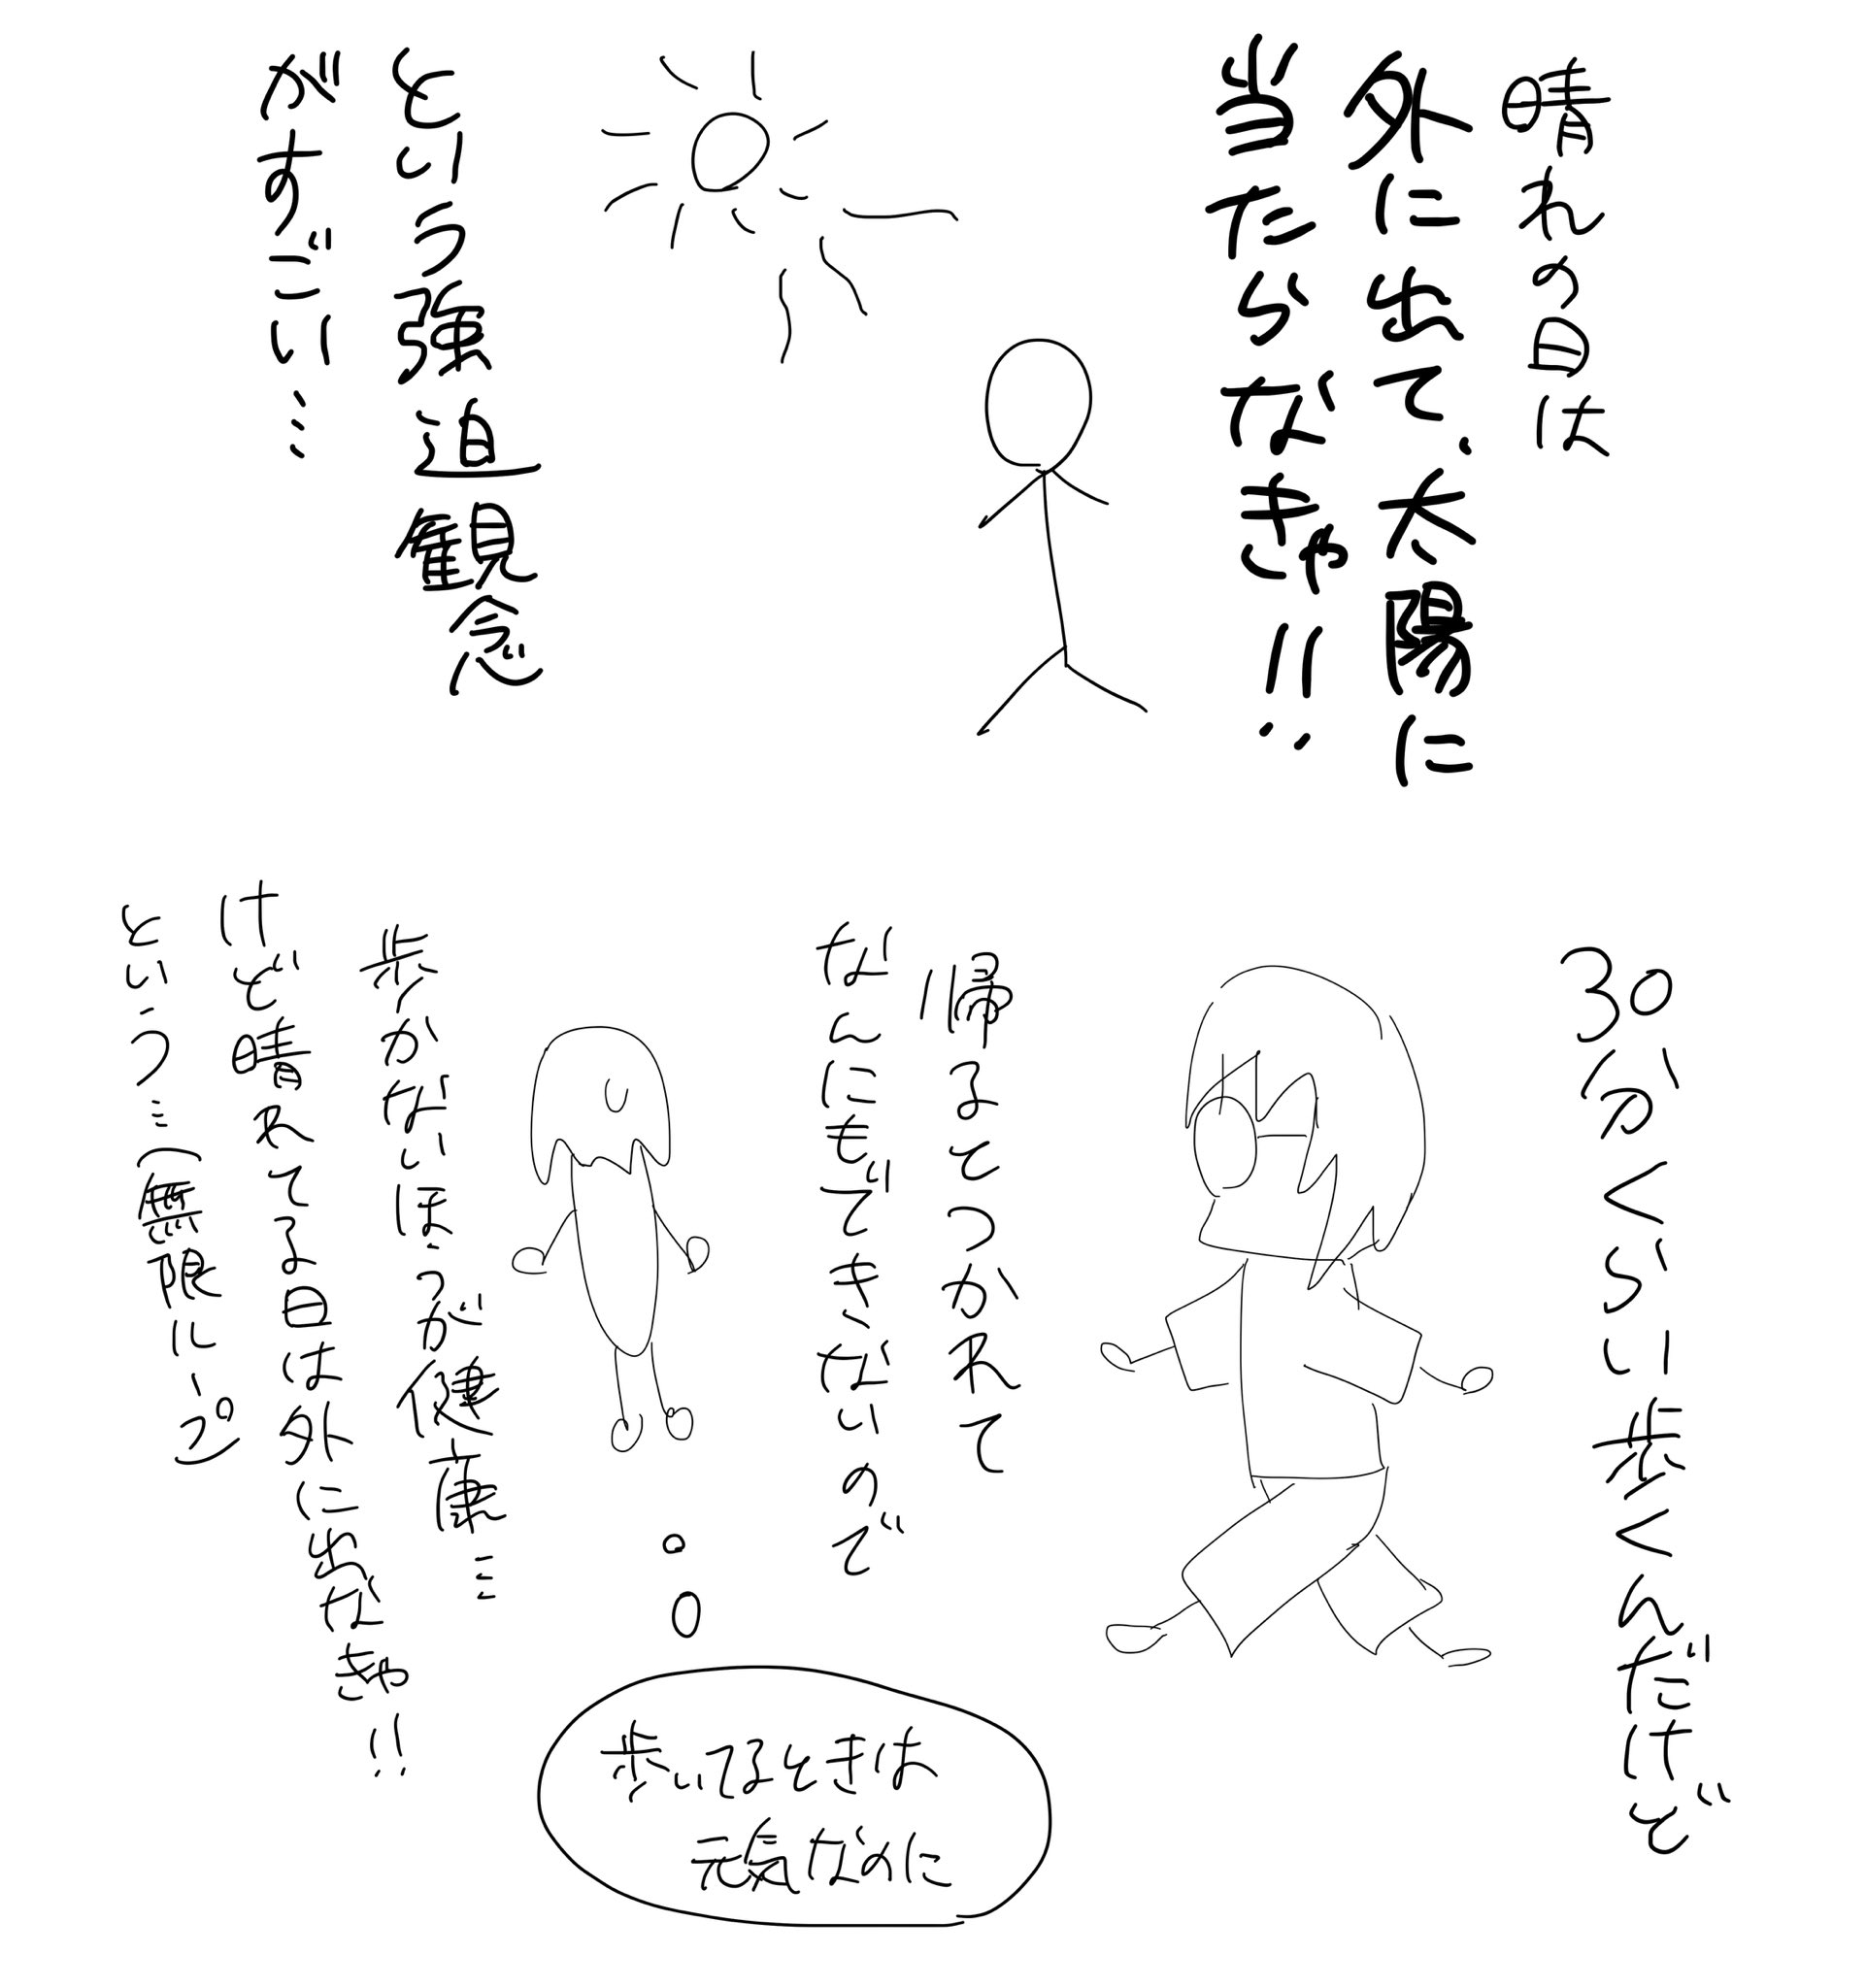 晴れの日は
外に出て、太陽に
当たらなきゃ!!
という強迫観念
がすごい…
30分くらい歩くんだけど
帰るとつかれて
なんにもできないので
歩いてるときは
元気なのに
歩かないほうが健康…
けど晴れてる日は外に出なきゃ!!
という…(無限ループ